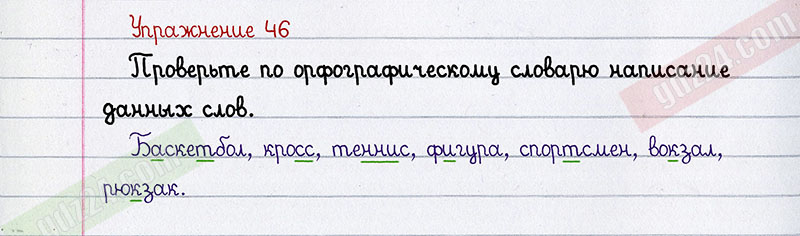 Упражнение 46
Проверьте по орфографическому словарю написание
данных слов.
Баскетбол, кросс, теннис, фигура, спортсмен, вокзал,
рюкзак.
gdz24.com
gdz24.com